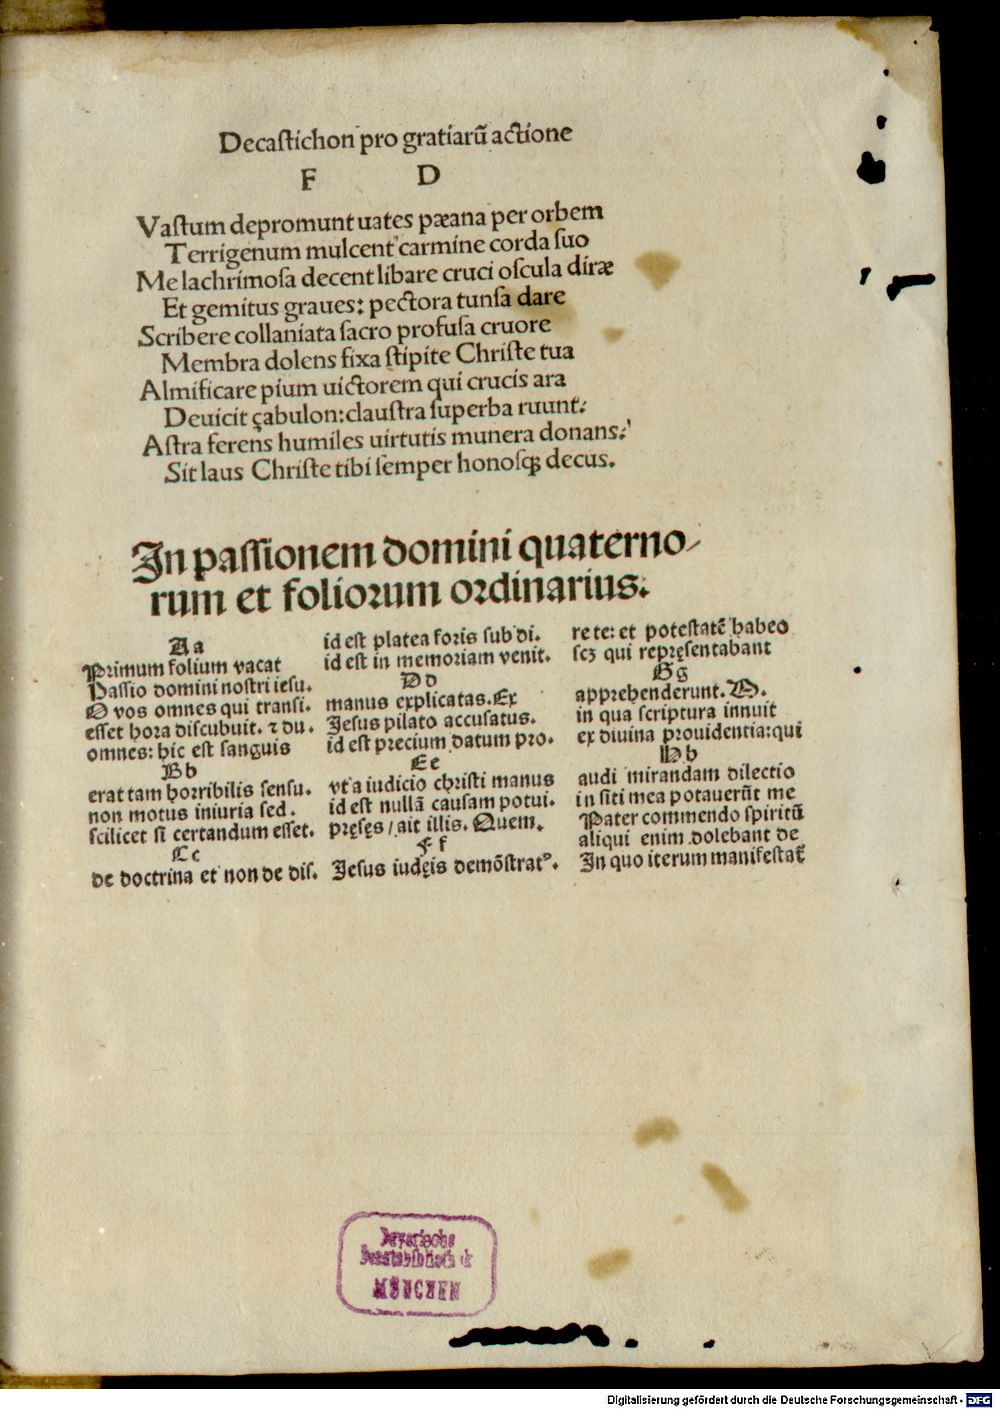 Decaſtichon pro gratiarū actione
F D
Vaſtum depromunt uates pæana per orbem
Terrigenum mulcent carmine corda ſuo
Me lachrimoſa decent libare cruci oſcula diræ
Et gemitus graues: pectora tunſa dare
Scribere collaniata ſacro profuſa cruore
Membra dolens fixa ſtipite Chriſte tua
Almificare pium uictorem qui crucis ara
Deuicit çabulon: clauſtra ſuperba ruunt:
Aſtra ferens humiles uirtutis munera donans:
Sit laus Chriſte tibi ſemper honoſqꝫ decus.
In paſſionem domini quaterno⸗
rum et foliorum ordinarius.
Aa
Primum folium vacat
Paſſio domini noſtri ieſu.
O vos omnes qui tranſi.
eſſet hora diſcubuit. ⁊ du.
omnes: hic eſt ſanguis
Bb
erat tam horribilis ſenſu.
non motus iniuria ſed.
ſcilicet ſi certandum eſſet.
Cc
de doctrina et non de diſ.
id eſt platea foris ſub di.
id eſt in memoriam venit.
Dd
manus explicatas. Ex
Jeſus pilato accuſatus.
id eſt precium datum pro.
Ee
vt a iudicio chriſti manus
id eſt nullā cauſam potui.
pręſęs / ait illis. Quem.
Ff
Jeſus iudęis demōſtratꝰ.
re te: et poteſtatē habeo
ſcꝫ qui repręſentabant
Gg
apprehenderunt. O.
in qua ſcriptura innuit
ex diuina prouidentia: qui
Hh
audi mirandam dilectio
in ſiti mea potauerūt me
Pater commendo ſpiritū
aliqui enim dolebant de
In quo iterum manifeſtat̄
Bayerische
Staatsbibliothek
MÜNCHEN
Digitalisierung gefördert durch die Deutsche Forschungsgemeinschaft - DFG